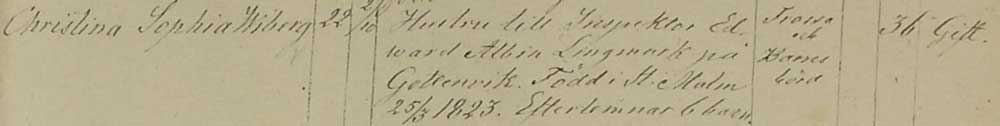 Christina Sophia Wiberg 22 21/10 Hustru till Inspektor Ed- Frossa 36 Gift.
ward Albin Lingmark på och
Göllenvik. Född i St. Malm Barns
25/3 1823. Efterlemnar 6 barn. börd